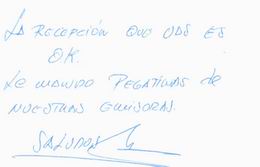 LA RECEPCIÓN QUE UDS ES
OK.
LE MANDO PEGATINAS de
NUESTRAS EMISORAS.
SALUDOS